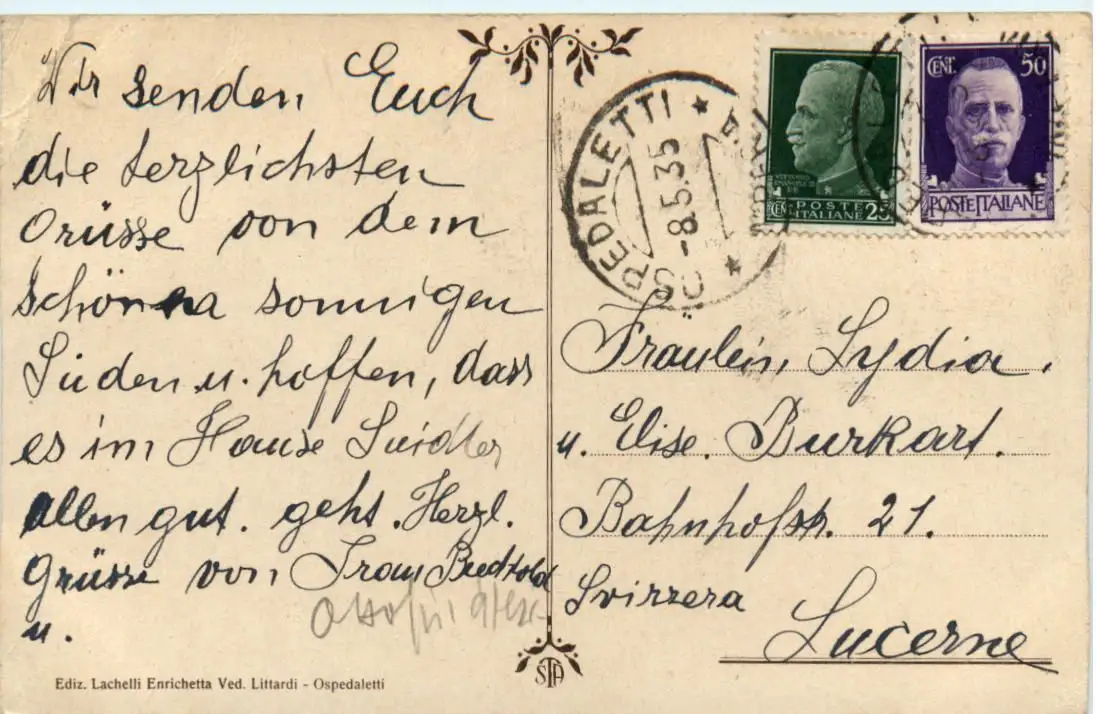 Wir senden Euch
die herzlichsten
Grüsse von dem
schönen sonnigen
Süden u. hoffen, dass
es im Hause
allen gut. geht. Herzl.
Grüsse von Frau
u.
Ediz. Lachelli Enrichetta Ved. Littardi - Ospedaletti
OSPEDALETTI
-8.5.35
VITTORIO EMANUELE III
CEN. POSTE ITALIANE 25
CENT. 50
POSTE ITALIANE
Fräulein, Lydia.
u. Elise. Burkart.
Bahnhofstr. 21.
Svizzera
Lucerne